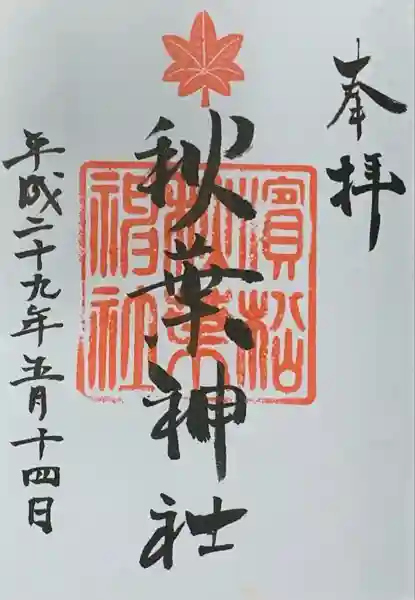 奉拝
濱松
秋葉
神社
秋葉神社
平成二十九年五月十四日